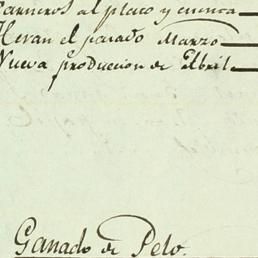 Carneros al placo y cuenca
Heran el pasado Marzo
Nueva produccion de Elbril
Ganado de Pelo.